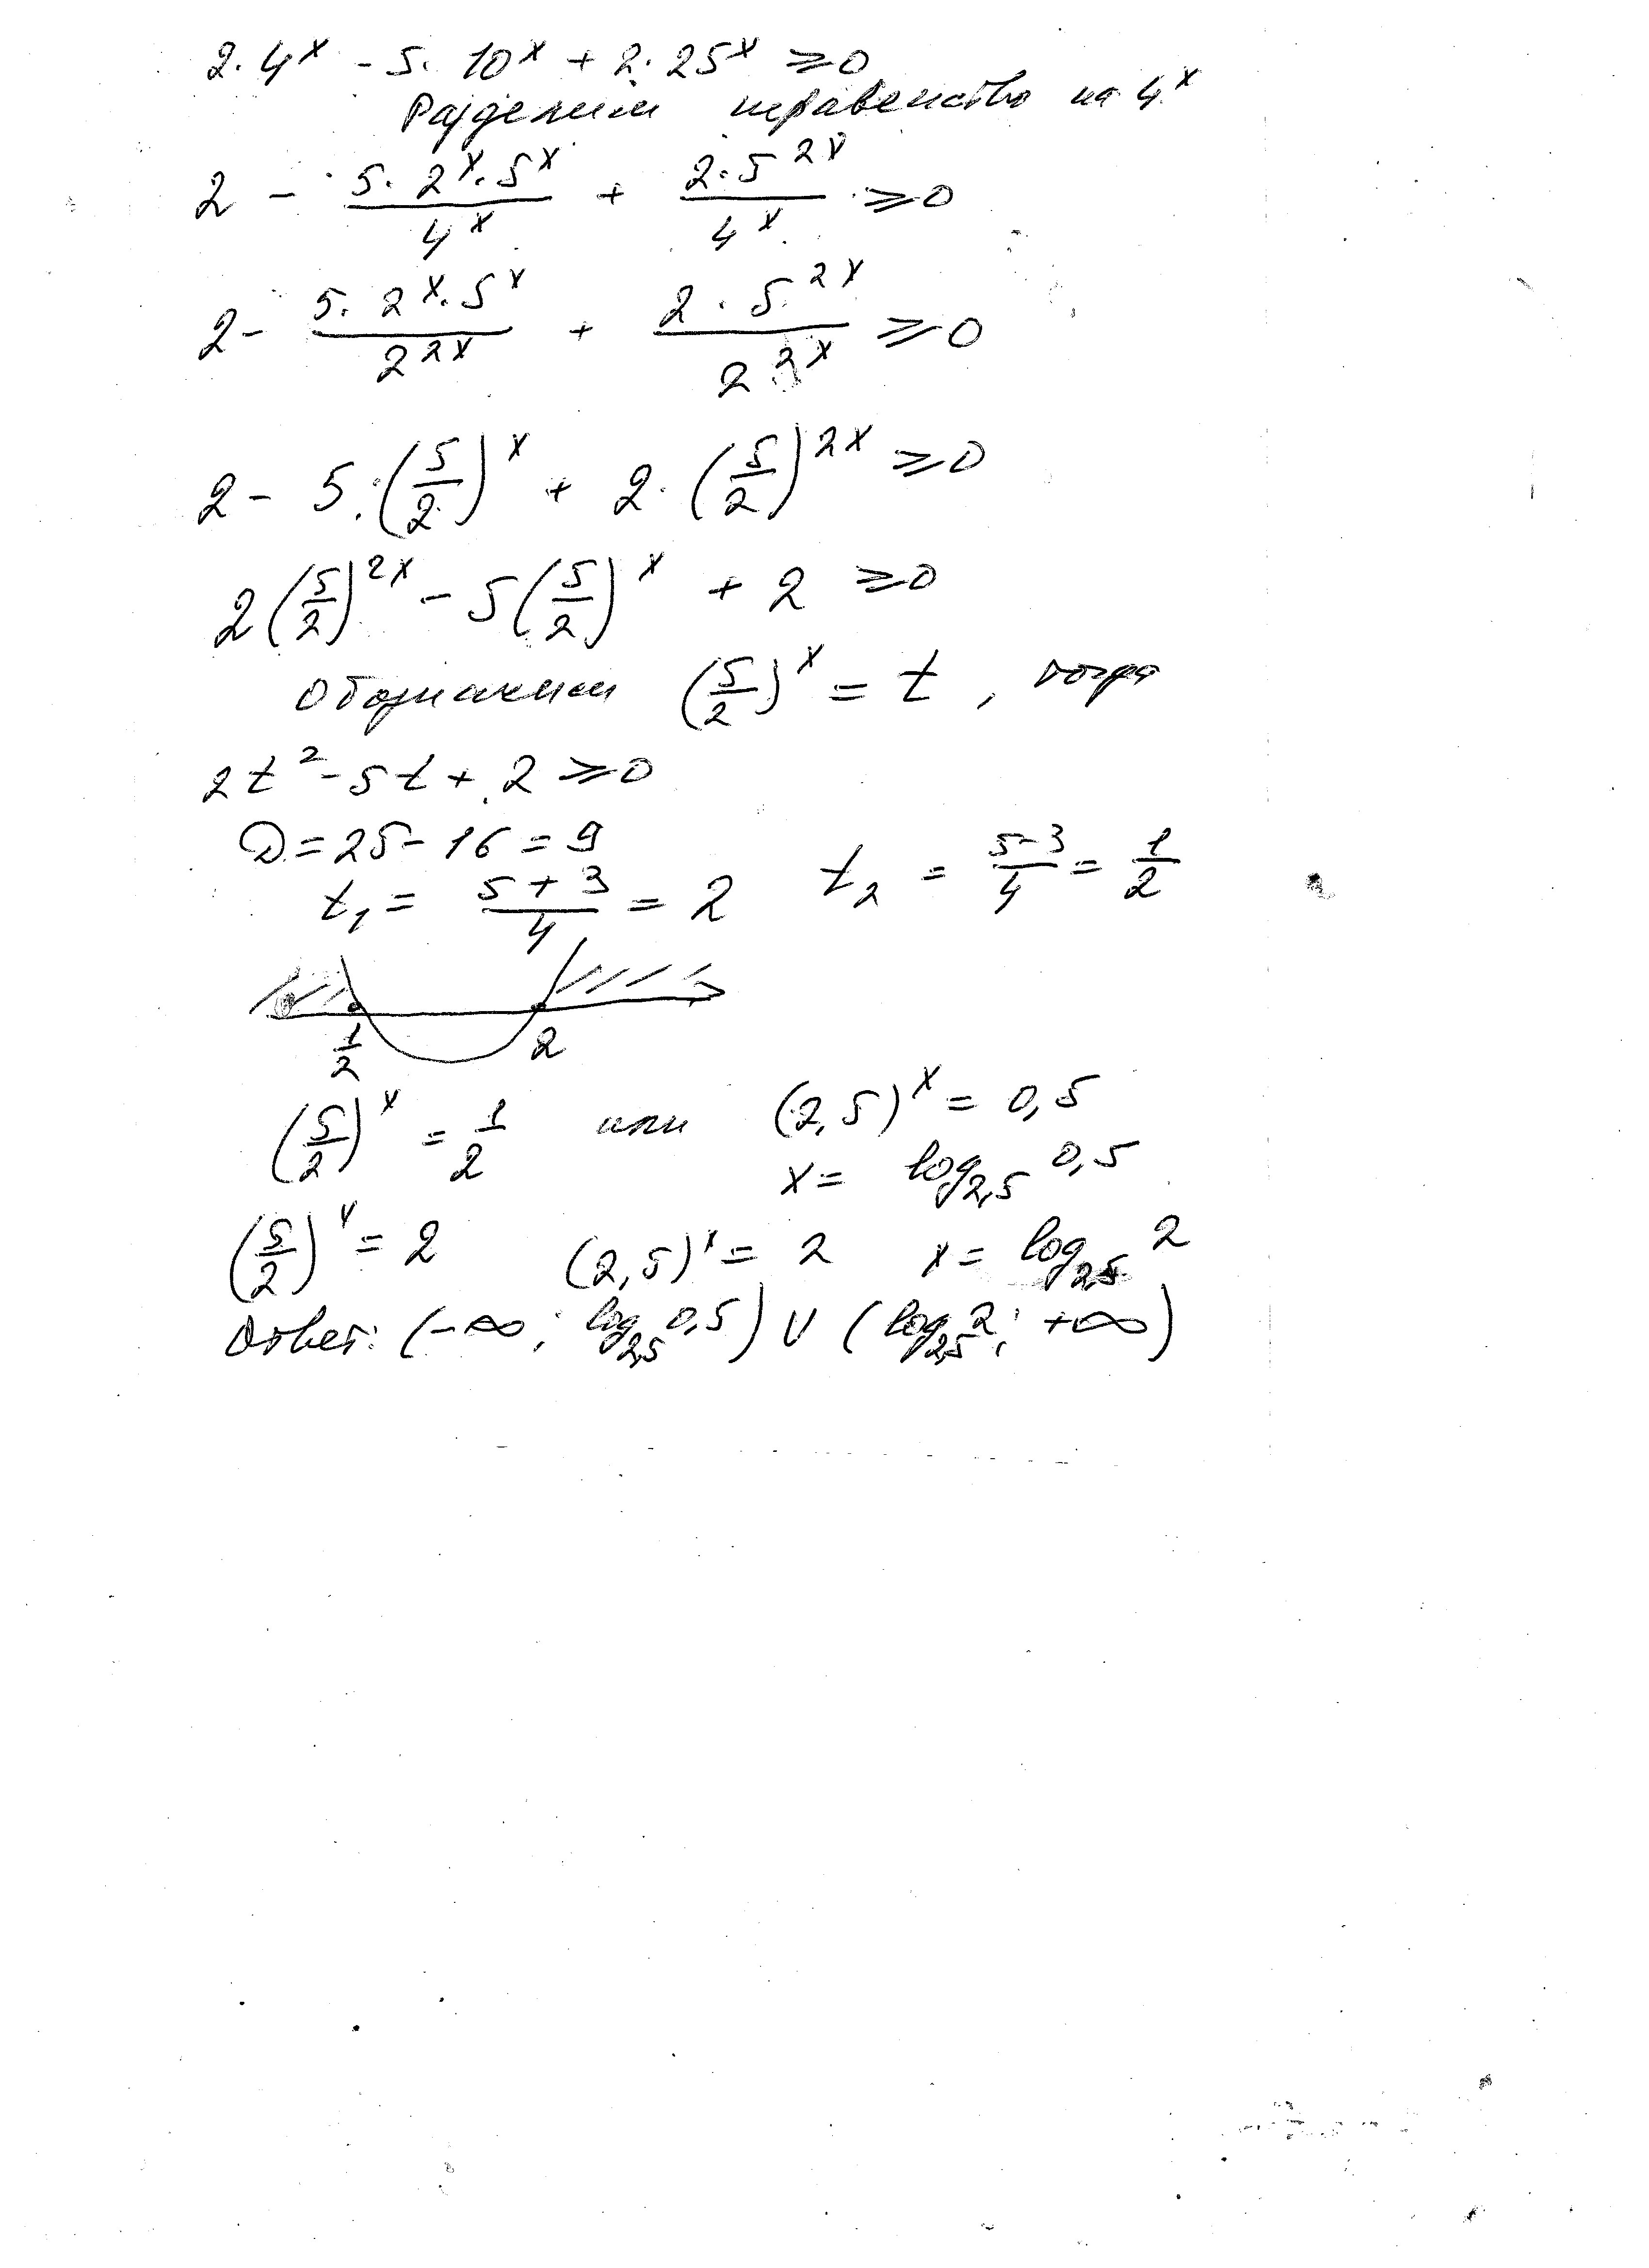 2·4^x - 5·10^x + 2·25^x ⩾ 0
Разделим неравенство на 4^x
2 - (5·2^x·5^x)/(4^x) + (2·5^(2x))/(4^x) ⩾ 0
2 - (5·2^x·5^x)/(2^(2x)) + (2·5^(2x))/(2^(2x)) ⩾ 0
2 - 5·(5/2)^x + 2·(5/2)^(2x) ⩾ 0
2(5/2)^(2x) - 5(5/2)^x + 2 ⩾ 0
Обозначим (5/2)^x = t, тогда
2t² - 5t + 2 ⩾ 0
D = 25 - 16 = 9
t₁ = (5+3)/4 = 2 t₂ = (5-3)/4 = 1/2
1/2 2
(5/2)^x = 1/2 или (2,5)^x = 0,5
x = log_2,5 0,5
(5/2)^x = 2 (2,5)^x = 2 x = log_2,5 2
Ответ: (-∞; log_2,5 0,5) ∪ (log_2,5 2; +∞)